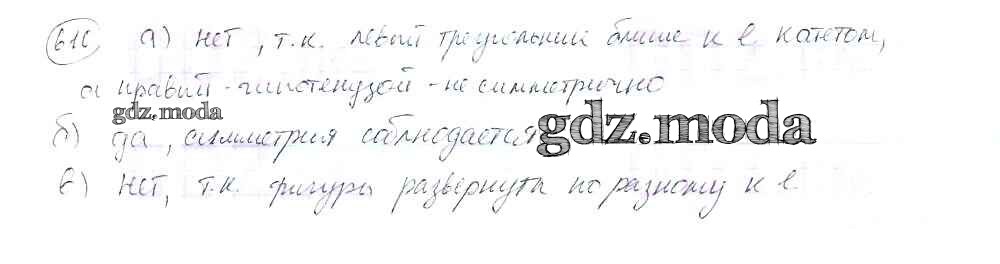 616 а) нет, т.к. левый треугольник ближе к l катетом,
а правый - гипотенузой - не симметрично
gdz.moda
б) да, симметрия соблюдается
gdz.moda
в) нет, т.к. фигуры развернуты по разному к l.